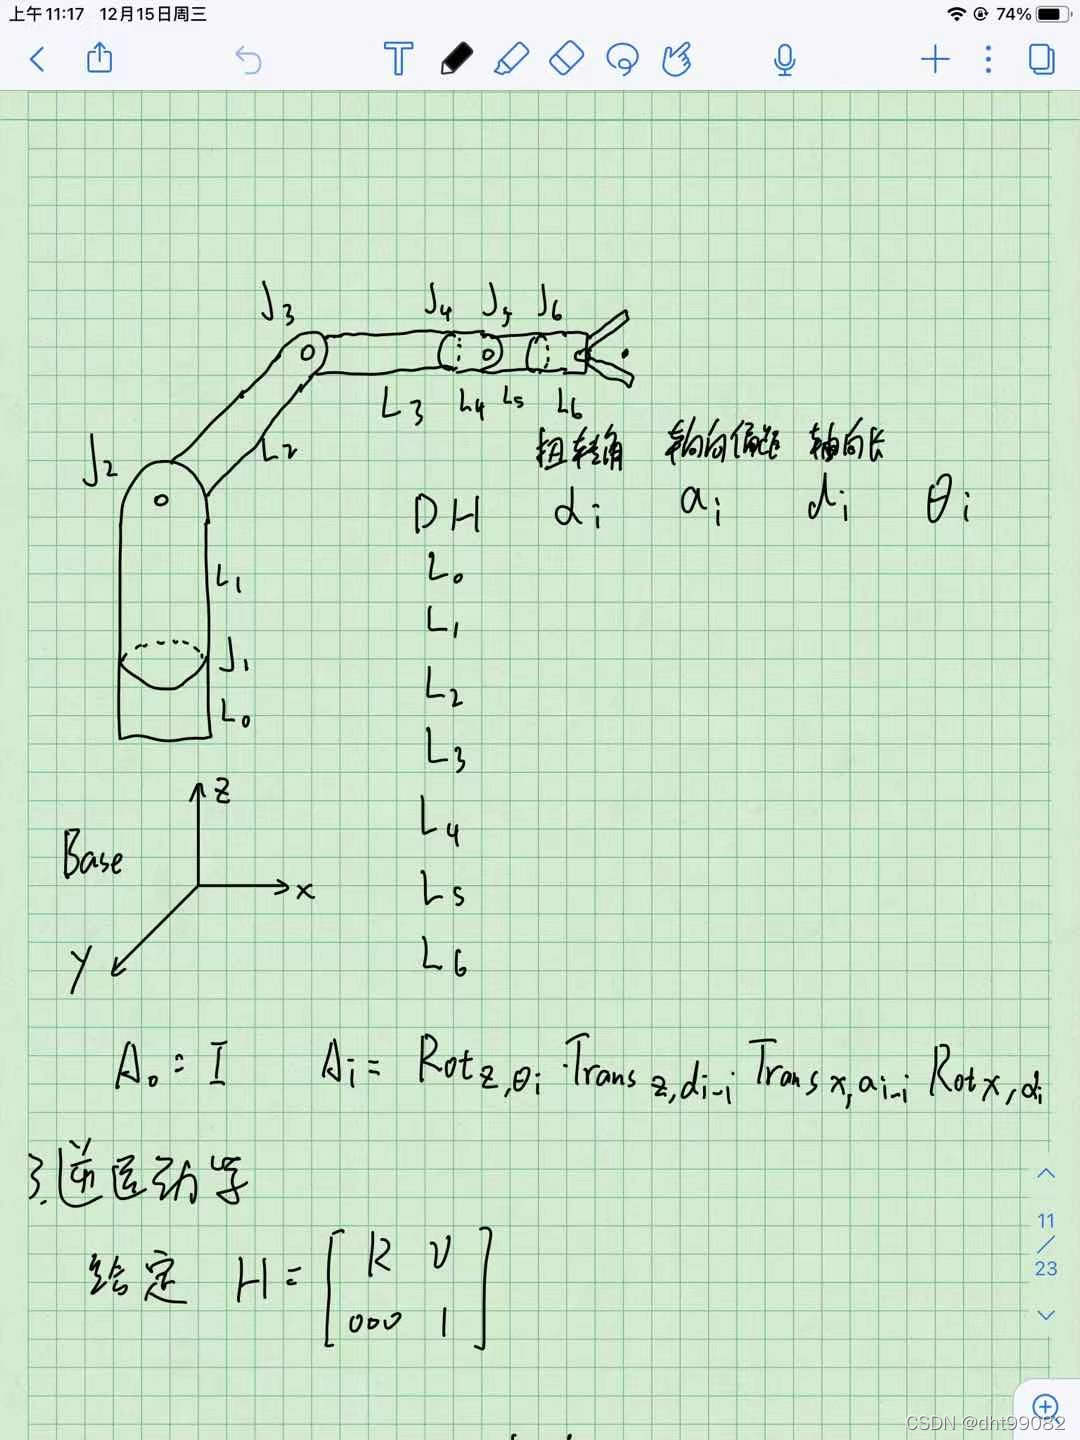 上午11:17 12月15日周三 74%
T
J₃ J₄ J₅ J₆
L₃ L₄ L₅ L₆
J₂ L₂
扭转角 轴向偏距 轴向长
DH αᵢ aᵢ dᵢ θᵢ
L₀
L₁
L₂
L₃
L₄
L₅
L₆
L₁
J₁
L₀
Z
Base X
Y
A₀ = I Aᵢ = Rot z,θᵢ · Trans z,dᵢ₋ᵢ Trans x,aᵢ₋ᵢ Rot x,αᵢ
3.逆运动学
给定 H = [R V
000 1]
11
/
23
CSDN @dht99082